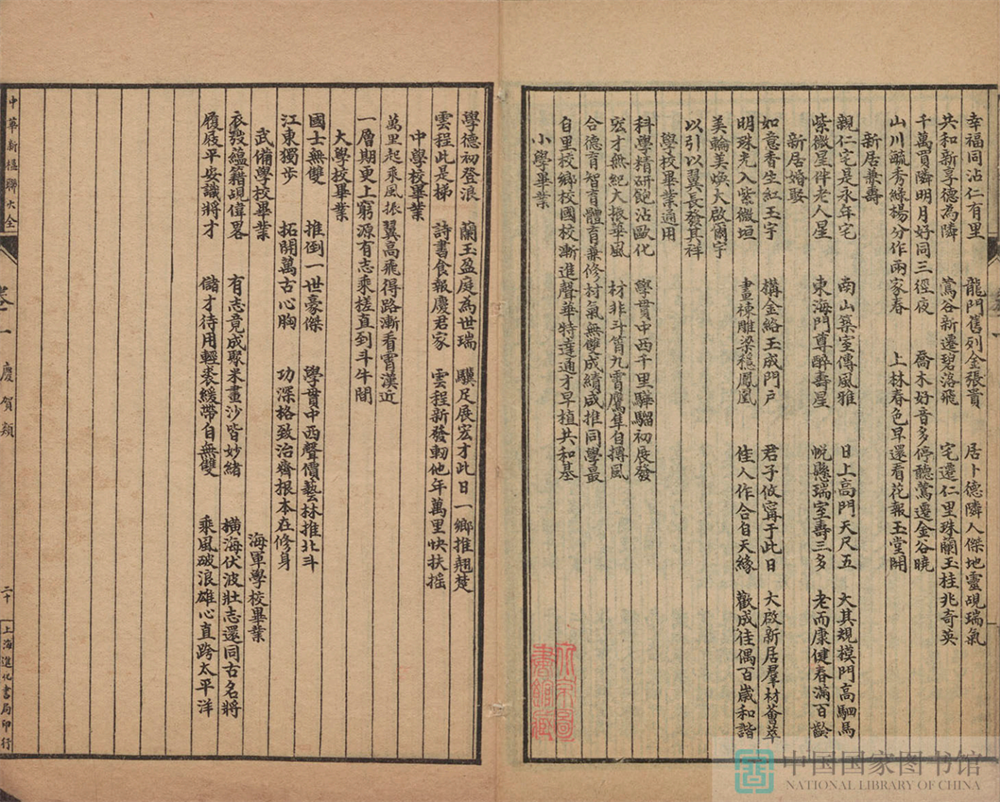 幸福同沾仁有里　龍門舊列金張貴　居卜德隣人傑地靈覘瑞氣
共和新享德為隣　鶯谷新遷碧落飛　宅遷仁里珠蘭玉桂兆奇英
千萬買隣明月好同三徑夜　喬木好音多停聽鶯遷金谷曉
山川毓秀綠楊分作兩家春　上林春色早還看花報玉堂開
新居兼壽
親仁宅吳永年宅　南山築室傳風雅　日上高門天尺五　大其規模門高駟馬
紫微星伴老人星　東海門尊醉壽星　帨懸瑞室壽三多　老而康健春滿百齡
新居婚娶
如意香生紅玉宇　構金絡玉成門戶　君子攸寧于此日　大啟新居羣材薈萃
明珠光入紫微垣　畫棟雕梁穩鳳凰　佳人作合自天緣　歡成佳偶百歲和諧
美輪美奐大啟爾宇
以引以翼長發其祥
學校畢業通用
科學精研飽沾歐化　學貫中西千里驊騮初展發
宏才無紀大振華風　材非斗筲九霄鷹隼自摶風
合德育智育體育兼修材氣無雙成績咸推同學最
自里校鄉校國校漸進聲華特達通才早植共和基
小學畢業
學德初登浪　蘭玉盈庭為世瑞　驥足展宏才此日一鄉推翹楚
雲程此是梯　詩書食報慶君家　雲程新發軔他年萬里快扶搖
中學校畢業
萬里起乘風振翼高飛得路漸看霄漢近
一層期更上窮源有志乘槎直到斗牛間
大學校畢業
國士無雙　推倒一世豪傑　學貫中西聲價藝林推北斗
江東獨步　拓開萬古心胸　功深格致治齊根本在修身
武備學校畢業　海軍學校畢業
衣發蘊籍覘偉畧　有志竟成聚米畫沙皆妙緒　橫海伏波壯志還同古名將
履屐平安識將才　儲才待用輕裘緩帶自無雙　乘風破浪雄心直跨太平洋
中華新楹聯大全
卷一　慶賀類
二十
上海進化書局印行
中国国家图书馆
NATIONAL LIBRARY OF CHINA